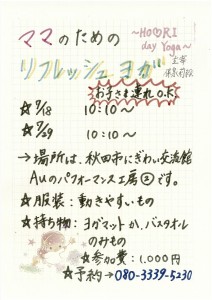 ママのための
~HO♡RI
day Yoga~
リフレッシュヨガ
お子さま連れO.K
☆9/18 10:10~
☆9/29 10:10~
→場所は、秋田市にぎわい交流館
Auのパフォーマンス工房②です。
☆服装:動きやすいもの
☆持ち物:ヨガマットか、バスタオル
のみもの
☆参加費:1.000円
☆予約→080-3339-5230